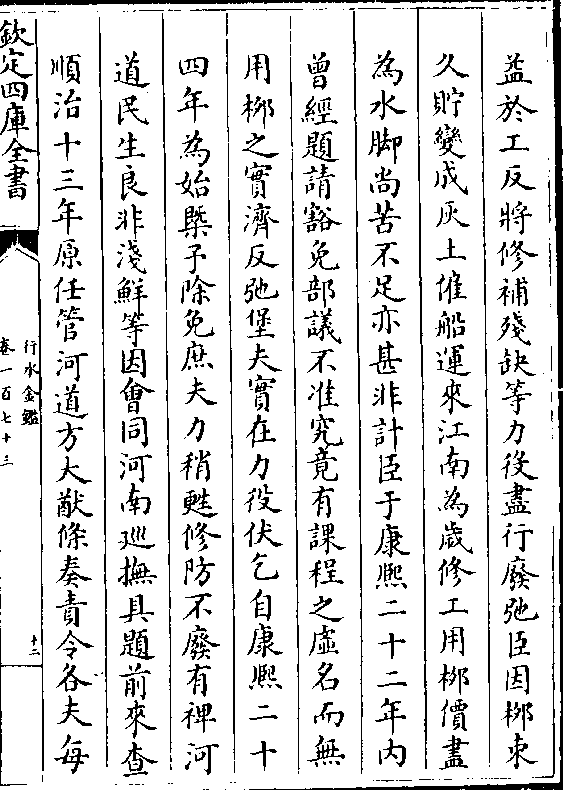 益於工反將修補殘缺等力役盡行廢弛臣因栁束
久貯變成灰土催船運來江南為歲修工用栁價盡
為水脚尚苦不足亦甚非計臣于康熙二十二年内
曾經題請豁免部議不准究竟有課程之虛名而無
用栁之實濟反弛堡夫實在力役伏乞自康熙二十
四年為始槩予除免庶夫力稍甦修防不廢有裨河
道民生良非淺鮮等因會同河南廵撫具題前來查
順治十三年原任管河道方大猷條奏責令各夫每
欽定四庫全書
行水金鑑
卷一百七十三
十二